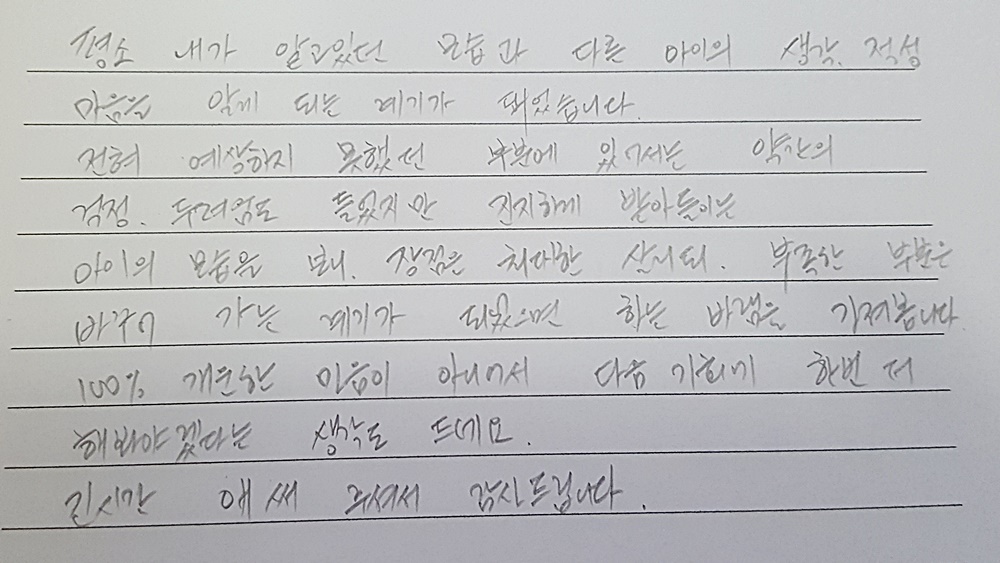 평소 내가 알고있던 모습과 다른 아이의 생각, 적성
마음을 알게 되는 계기가 돼었습니다.
전혀 예상하지 못했던 부분에 있어서는 약간의
걱정, 두려움도 들었지만 진지하게 받아들이는
아이의 모습을 보며, 장점은 최대한 살리되, 부족한 부분은
바꾸어 가는 계기가 되었으면 하는 바램을 가져봅니다.
100% 개운한 마음이 아니어서 다음 기회에 한번 더
해봐야겠다는 생각도 드네요.
긴시간 애써 주셔서 감사드립니다.